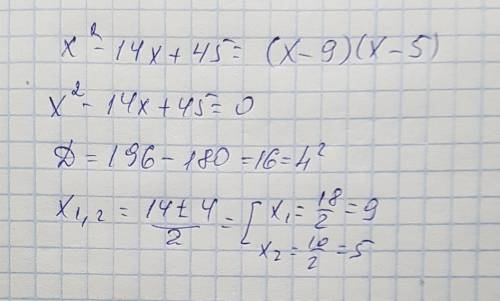 x² - 14x + 45 = (x - 9)(x - 5)
x² - 14x + 45 = 0
D = 196 - 180 = 16 = 4²
x₁,₂ = (14 ± 4)/2 = [ x₁ = 18/2 = 9
x₂ = 10/2 = 5